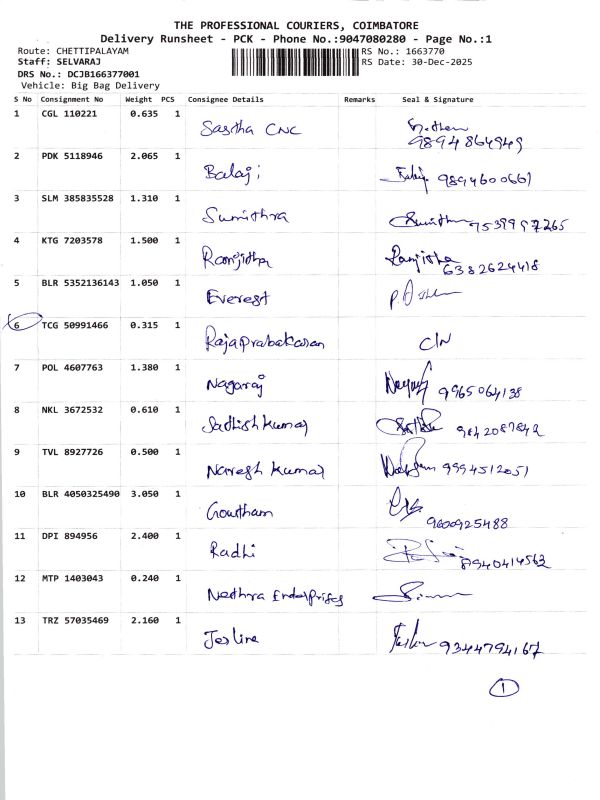 THE PROFESSIONAL COURIERS, COIMBATORE
Delivery Runsheet - PCK - Phone No.:9047080280 - Page No.:1
Route: CHETTIPALAYAM RS No.: 1663770
Staff: SELVARAJ RS Date: 30-Dec-2025
DRS No.: DCJB166377001
Vehicle: Big Bag Delivery
S No Consignment No Weight PCS Consignee Details Remarks Seal & Signature
1 CGL 110221 0.635 1 Sastha CNC
9894864949
2 PDK 5118946 2.065 1 Balaji 9894600661
3 SLM 385835528 1.310 1 Sumithra Sumithra 7539997265
4 KTG 7203578 1.500 1 Ranjitha Ranjitha
6382624418
5 BLR 5352136143 1.050 1 Everest
6 TCG 50991466 0.315 1 Rajaprabakaran C/N
7 POL 4607763 1.380 1 Nagaraj 9965064138
8 NKL 3672532 0.610 1 Sadhishkumaj 9842087842
9 TVL 8927726 0.500 1 Naresh Kumaj 9994512051
10 BLR 4050325490 3.050 1 Gowtham
9600925488
11 DPI 894956 2.400 1 Radhi 8940414563
12 MTP 1403043 0.240 1 Nethra Enterprises
13 TRZ 57035469 2.160 1 Jesline 9344794167
1